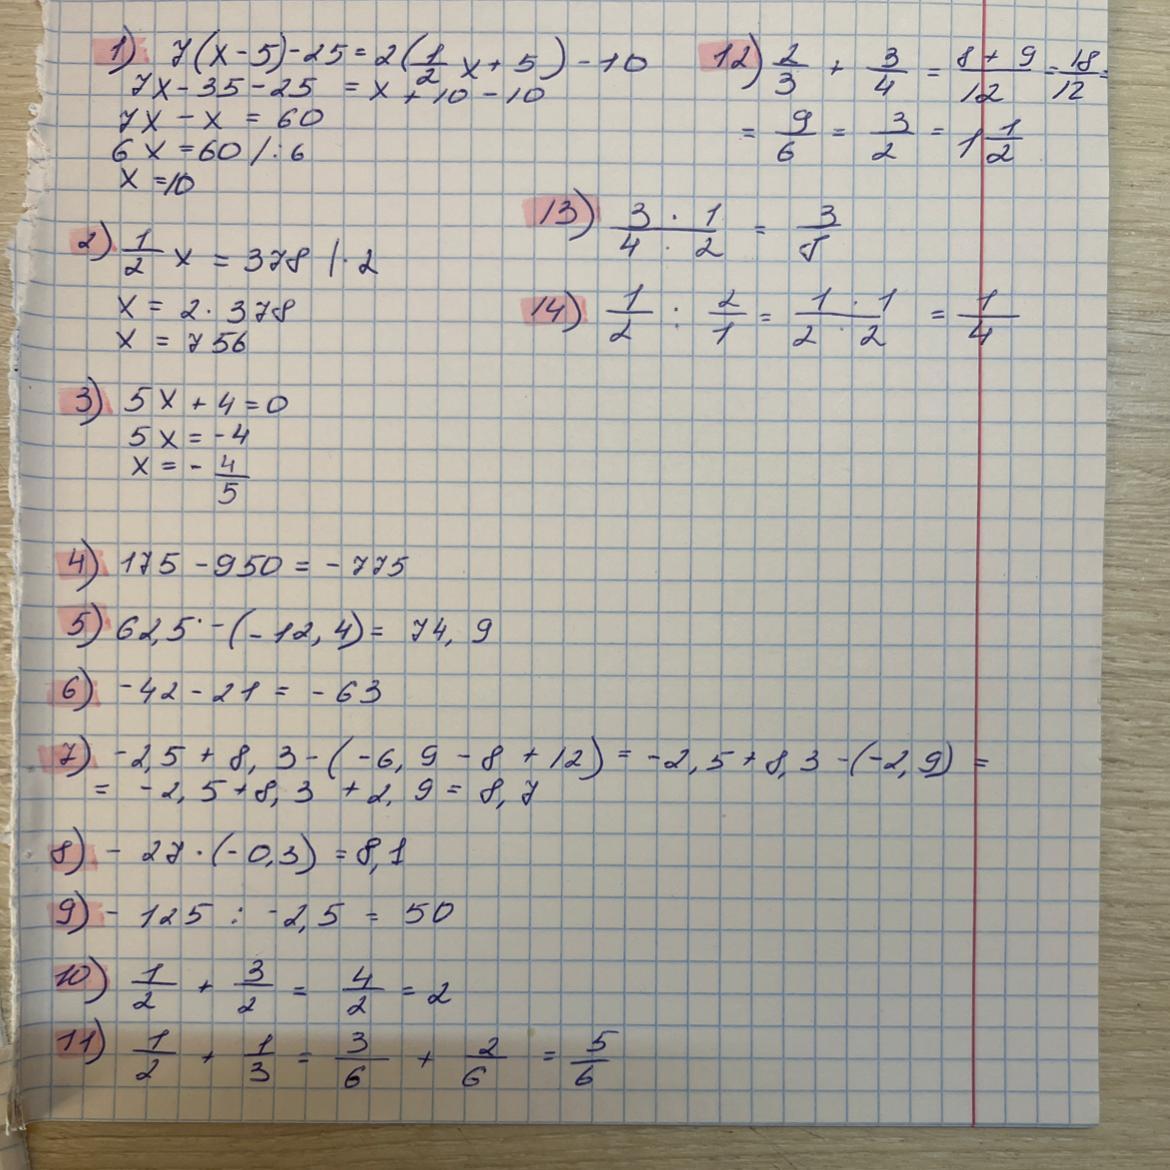 1) 7(x-5)-25=2(1/2 x+5)-10
7x-35-25 = x+10-10
7x-x=60
6x=60/:6
x=10
2) 1/2 x = 378 |·2
x = 2·378
x = 756
3) 5x+4=0
5x=-4
x=-4/5
4) 175-950=-775
5) 62,5-(-12,4)=74,9
6) -42-21=-63
7) -2,5+8,3-(-6,9-8+12)=-2,5+8,3-(-2,9)=
= -2,5+8,3+2,9=8,7
8) -27·(-0,3)=8,1
9) -125 : -2,5 = 50
10) 1/2 + 3/2 = 4/2 = 2
11) 1/2 + 1/3 = 3/6 + 2/6 = 5/6
12) 2/3 + 3/4 = 8+9/12 = 18/12 =
= 9/6 = 3/2 = 1 1/2
13) 3·1/4·2 = 3/8
14) 1/2 : 2/1 = 1·1/2·2 = 1/4